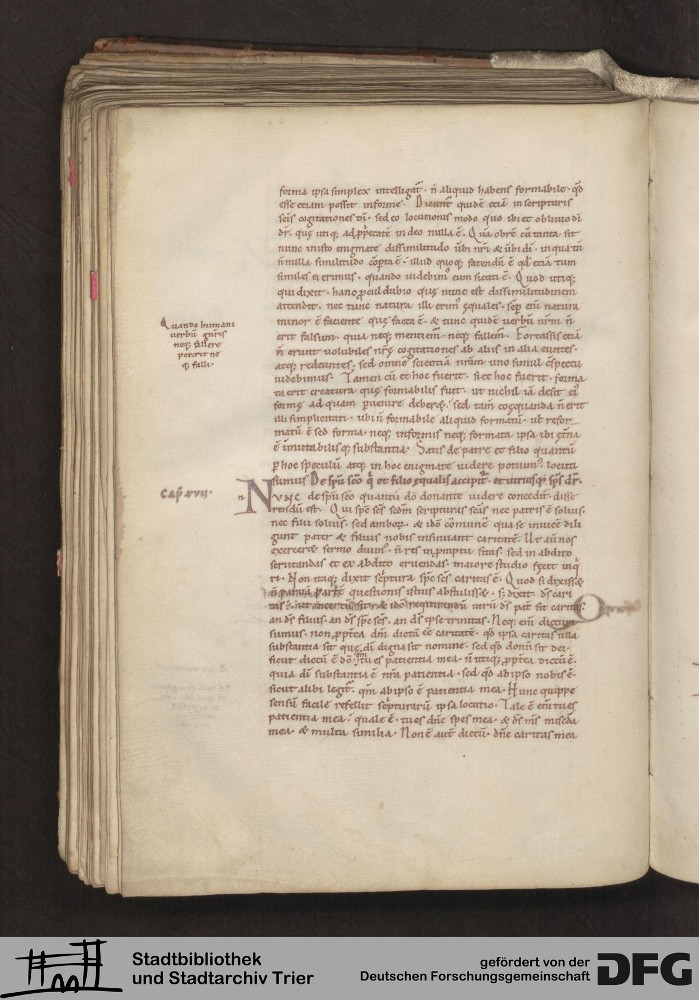 forma ipsa simplex intelligat᷑. n̄ aliquid habens formabile. qd̄
esse etiam possit informe. Dicunt᷑ quidē etiā in scripturis
sc̄is cogitationes dī. sed eo locutionis modo quo ibi et obliuio dī
dr̄. quę utiq; ad ꝓprietatē in deo nulla ē. Quā obrē cū tanta sit
nunc in isto enigmate dissimilitudo ūbi nr̄i & ūbi dī. in qua tn̄
n̄ nulla similitudo cōꝑta ē. illud quoq; fatendū ē qd̄ etiā cum
similes ei erimus. quando uidebim᷒ eum sicuti ē. Quod utiq;
qui dixit. hanc ꝓcul dubio quę nunc est dissimilitudinem
attendit. nec tunc natura illi erim᷒ ęquales. sep̄ enī natura
minor ē faciente quę facta ē. & tunc quidē uerbū nr̄m n̄
erit falsum. quia neq; mentiem᷒. neq; fallem᷒. Fortassis etiā
n̄ erunt uolubiles nr̄ę cogitationes ab aliis in alia euntes.
atq; redeuntes; sed omnē scientiā nr̄am uno simul c̄spectu
uidebimus. Tamen cū et hoc fuerit. si et hoc fuerit. forma
ta erit creatura quę formabilis fuit. ut nichil iā desit ei᷒
formę ad quam ꝑuenire deberet. sed tam̄ coęquanda n̄ erit
illi simplicitati. ubi n̄ formabile aliquid formatū. ut̄ refor
matū ē sed forma. neq; informis neq; formata ipsa ibi ęt̄na
ē inmutabilisq; substantia. Satis de patre et filio quantū
ꝑ hoc speculū atq; in hoc enigmate uidere potuim᷒. locuti
sumus De spū sc̄o q̄ et filio equalis accipit᷑. et utriusq; sp̄s dr̄.
Nunc de spū sc̄o quantū dō donante uidere concedit᷑. disse
rendū est. Qui sp̄c sc̄s sc̄dm̄ scripturas sc̄as nec patris ē solius.
nec filii solius. sed amboꝝ. & idō cōmunē qua se inuicē dili
gunt pater & filius nobis insinuant caritatē. Ut aū nos
exerceret sermo diuin᷒. n̄ res in promptu sitas. sed in abdito
scrutandas et ex abdito eruendas. maiore studio fecit inq̄
ri. Non itaq; dixit sc̄ptura sp̄c sc̄s caritas ē. Quod si dixisset
n̄ paruā parte questionis istius abstulisset. s; dixit. ds̄ cari
tas. ut incertū sit & idō requirendū utrū ds̄ pat᷑ sit caritas
an ds̄ filius. an ds̄ sp̄c sc̄s. an ds̄ ipse trinitas. Neq; enī dicturi
sumus. non ꝓpterea dm̄ dictū ēē caritatē. qd̄ ipsa caritas ulla
substantia sit quę dī digna sit nomine. sed qd̄ donū sit dei.
sicut dictū ē dō. qm̄ tu es patientia mea. n̄ utiq; ꝓpterea dictū ē.
quia dī substantia ē nr̄a patientia. sed qd̄ ab ipso nobis ē.
sicut alibi legit᷑. qm̄ ab ipso ē patientia mea. Hunc quippe
sensū facile refellit sc̄pturarū ipsa locutio. Tale ē enī tu es
patientia mea. quale ē. tu es dn̄e spes mea. & ds̄ ms̄ mis̄cdia
mea. & multa similia. Non ē aut̄ dictū. dn̄e caritas mea
Quando humani
uerbū generis
neq; fallere
poterit ne
q; falli.
Cap̄ XVII.
n
Stadtbibliothek
und Stadtarchiv Trier
gefördert von der
Deutschen Forschungsgemeinschaft
DFG